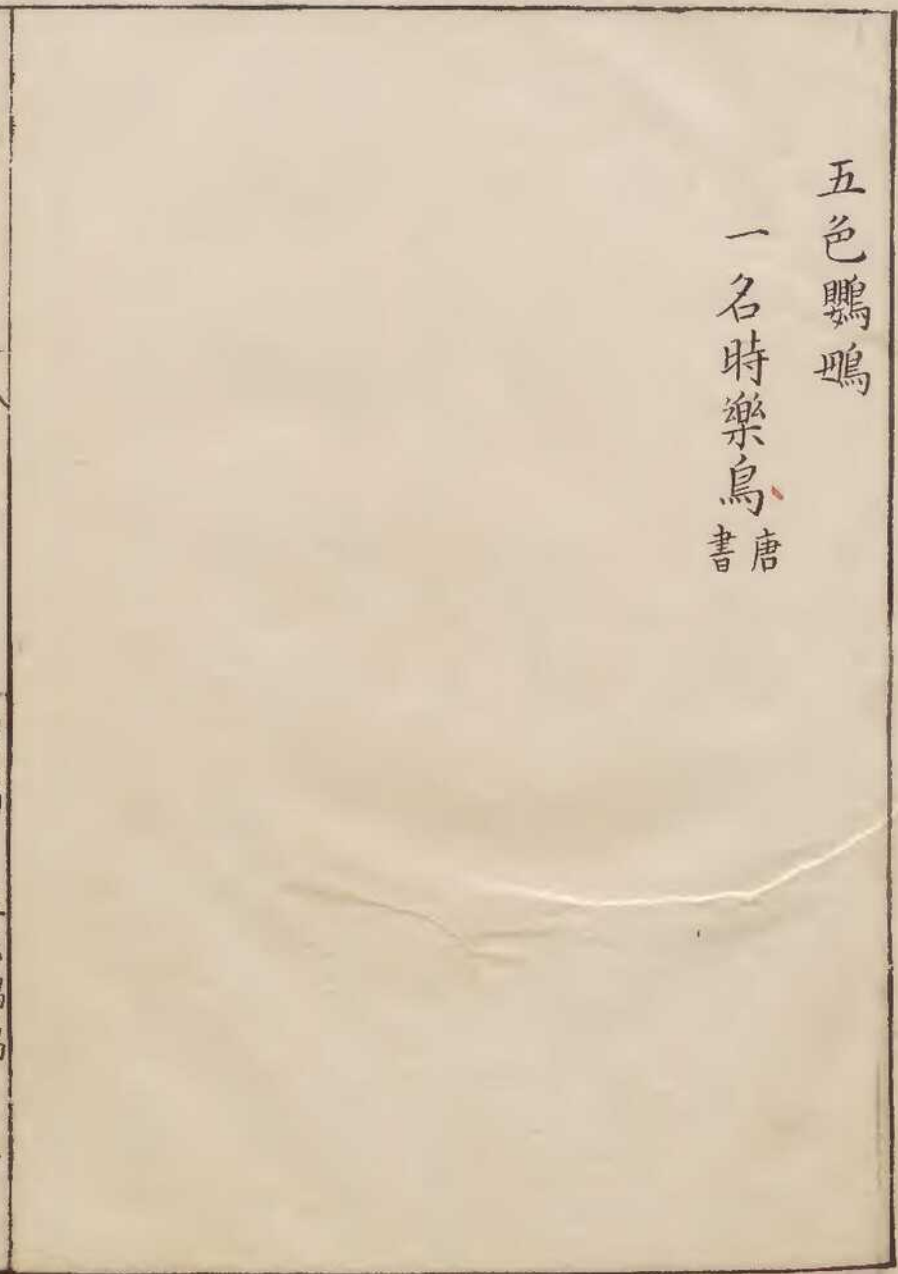 五色鸚䳇
一名時樂鳥唐書